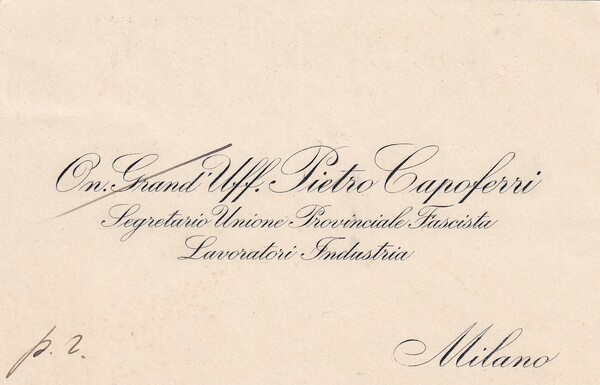 On. Grand' Uff. Pietro Capoferri
Segretario Unione Provinciale Fascista
Lavoratori Industria
p. r.
Milano